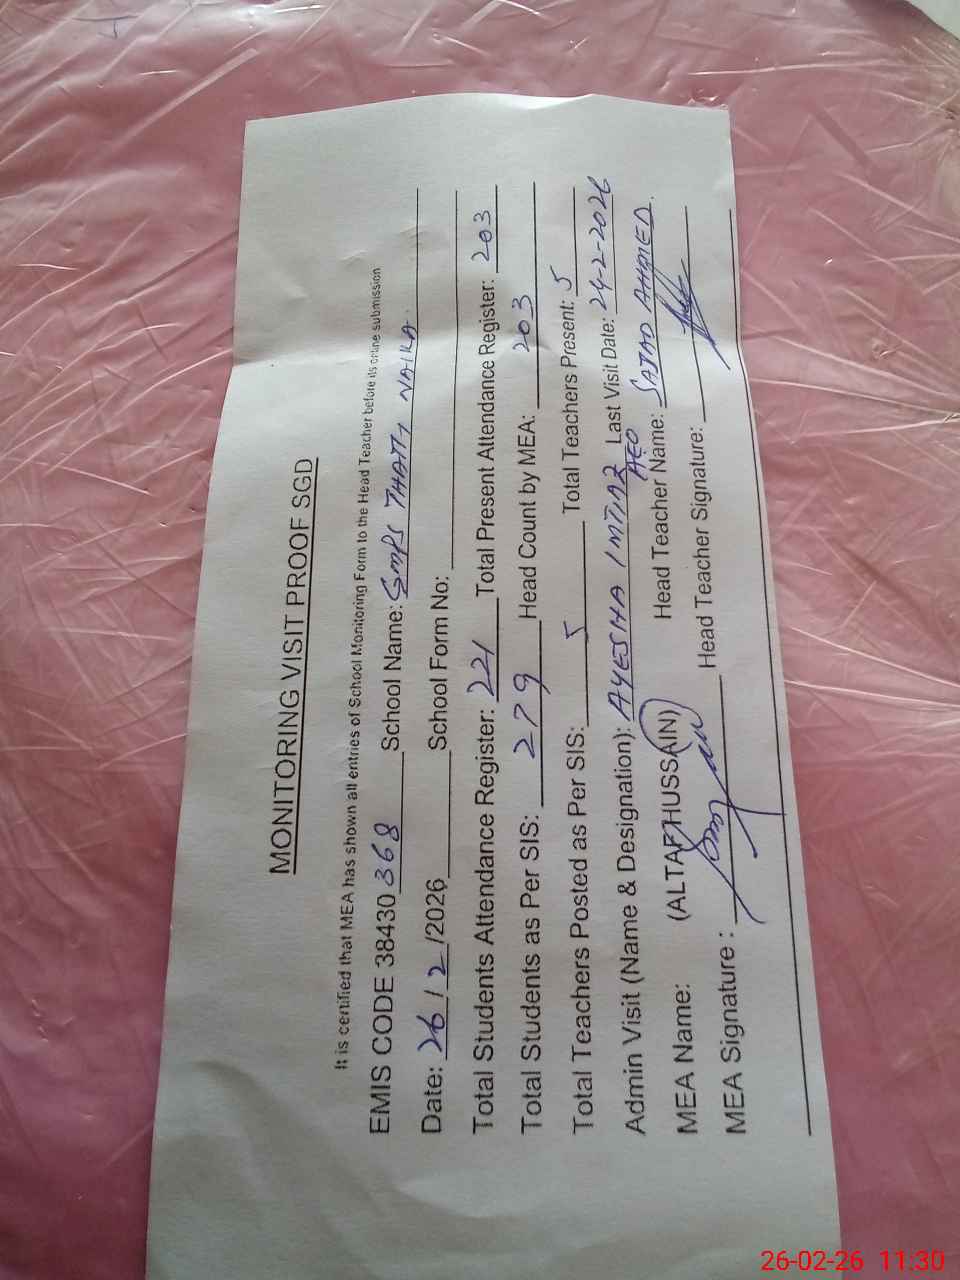 MONITORING VISIT PROOF SGD
It is certified that MEA has shown all entries of School Monitoring Form to the Head Teacher before its online submission
EMIS CODE 38430368 School Name: GMPS THATTI NAIKA.
Date: 26/2/2026 School Form No:
Total Students Attendance Register: 221 Total Present Attendance Register: 203
Total Students as Per SIS: 279 Head Count by MEA: 203
Total Teachers Posted as Per SIS: 5 Total Teachers Present: 5
Admin Visit (Name & Designation): AYESHA IMTIAZ AEO Last Visit Date: 24-2-2026
MEA Name: (ALTAF HUSSAIN) Head Teacher Name: SAJAD AHMED.
MEA Signature : Head Teacher Signature:
26-02-26 11:30